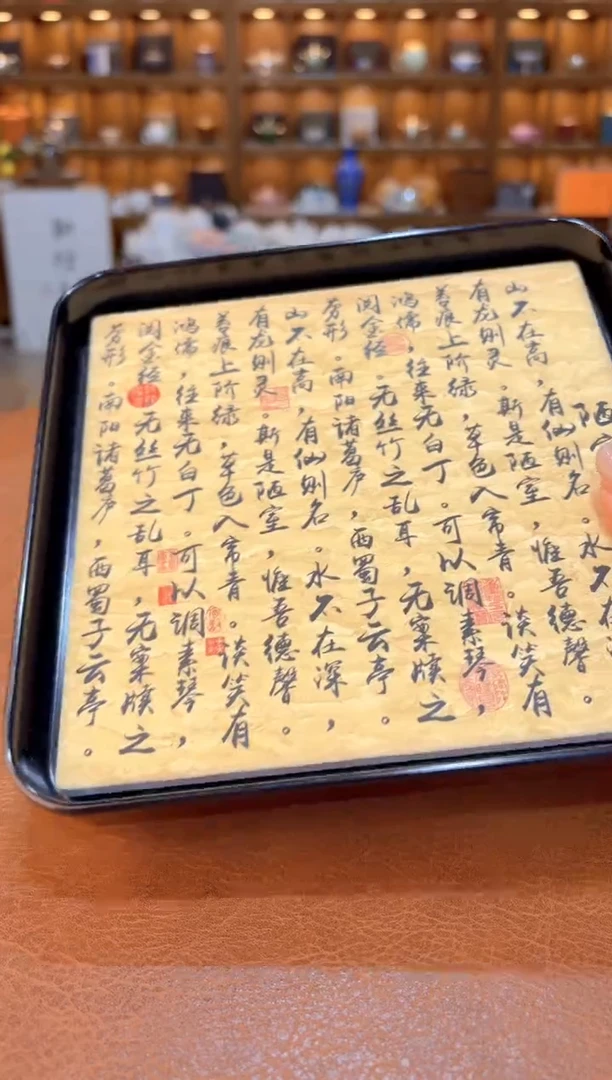 陋室
山不在高，有仙则名。水不在
有龙则灵。斯是陋室，惟吾德馨。
苔痕上阶绿，草色入帘青。谈笑有
鸿儒，往来无白丁。可以调素琴，
阅金经。无丝竹之乱耳，无案牍之
劳形。南阳诸葛庐，西蜀子云亭。
山不在高，有仙则名。水不在深，
有龙则灵。斯是陋室，惟吾德馨。
苔痕上阶绿，草色入帘青。谈笑有
鸿儒，往来无白丁。可以调素琴，
阅金经。无丝竹之乱耳，无案牍之
劳形。南阳诸葛庐，西蜀子云亭。